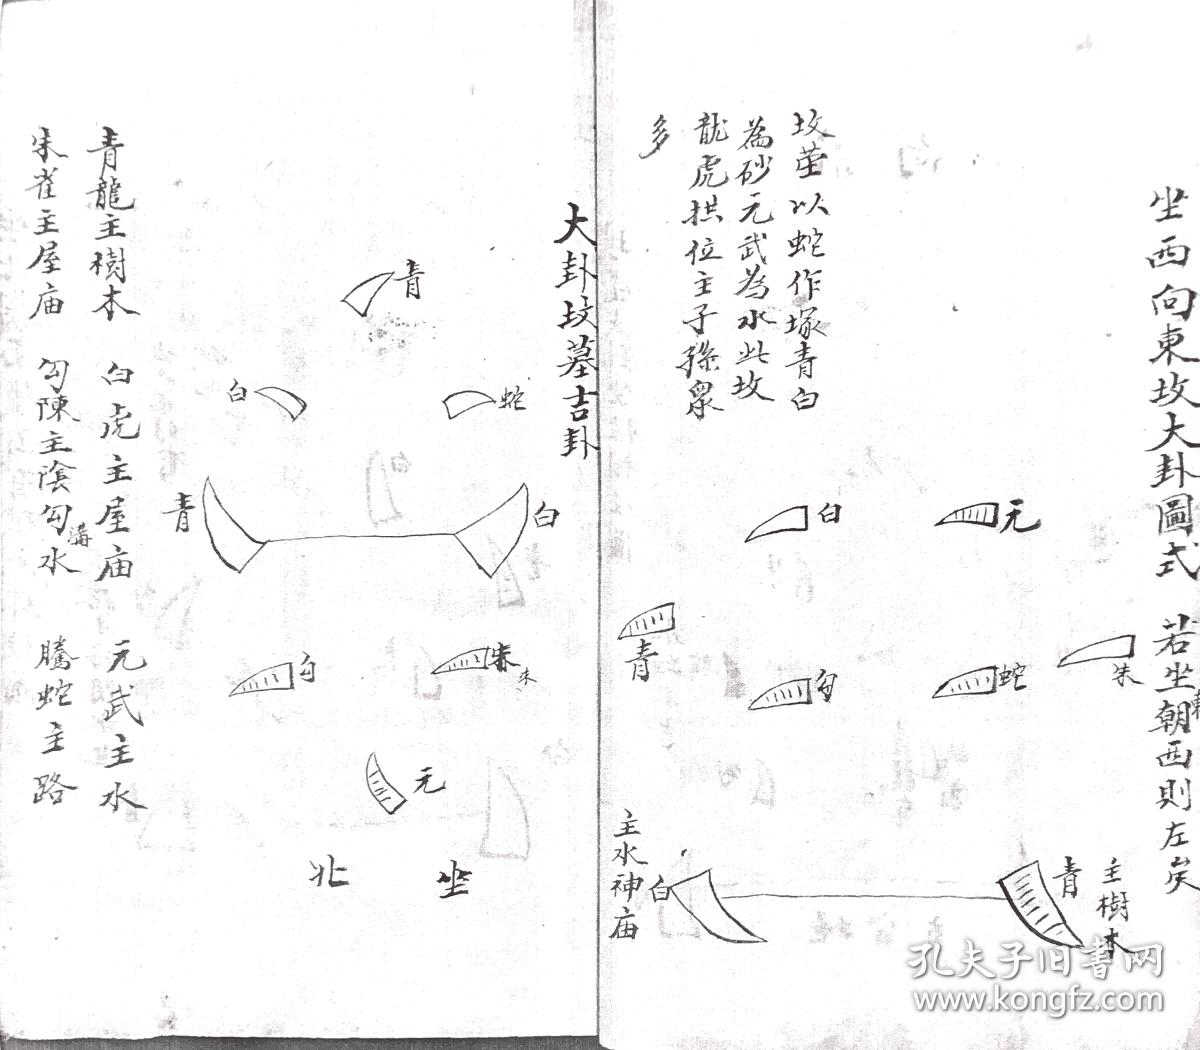 坐西向東坟大卦圖式　若坐東朝西則左矣
坟茔以蛇作塚青白
為砂元武為水此坟
龍虎拱位主子孫衆
多
元
白
朱
青
蛇
勾
主樹木
青
白
主水神庙
大卦坟墓吉卦
青
蛇
白
白
青
朱
勾
元
坐
北
青龍主樹木　白虎主屋庙　元武主水
朱雀主屋庙　勾陳主陰勾溝水　騰蛇主路
孔夫子旧书网
www.kongfz.com